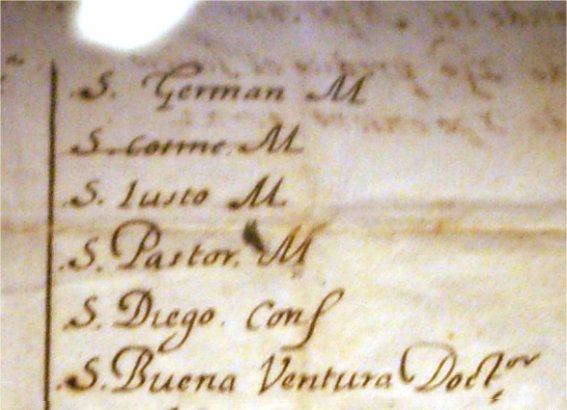 S. German M
S. cosme. M
S. Iusto M
S. Pastor. M
S. Diego. Conf
S. Buena Ventura Doct.or